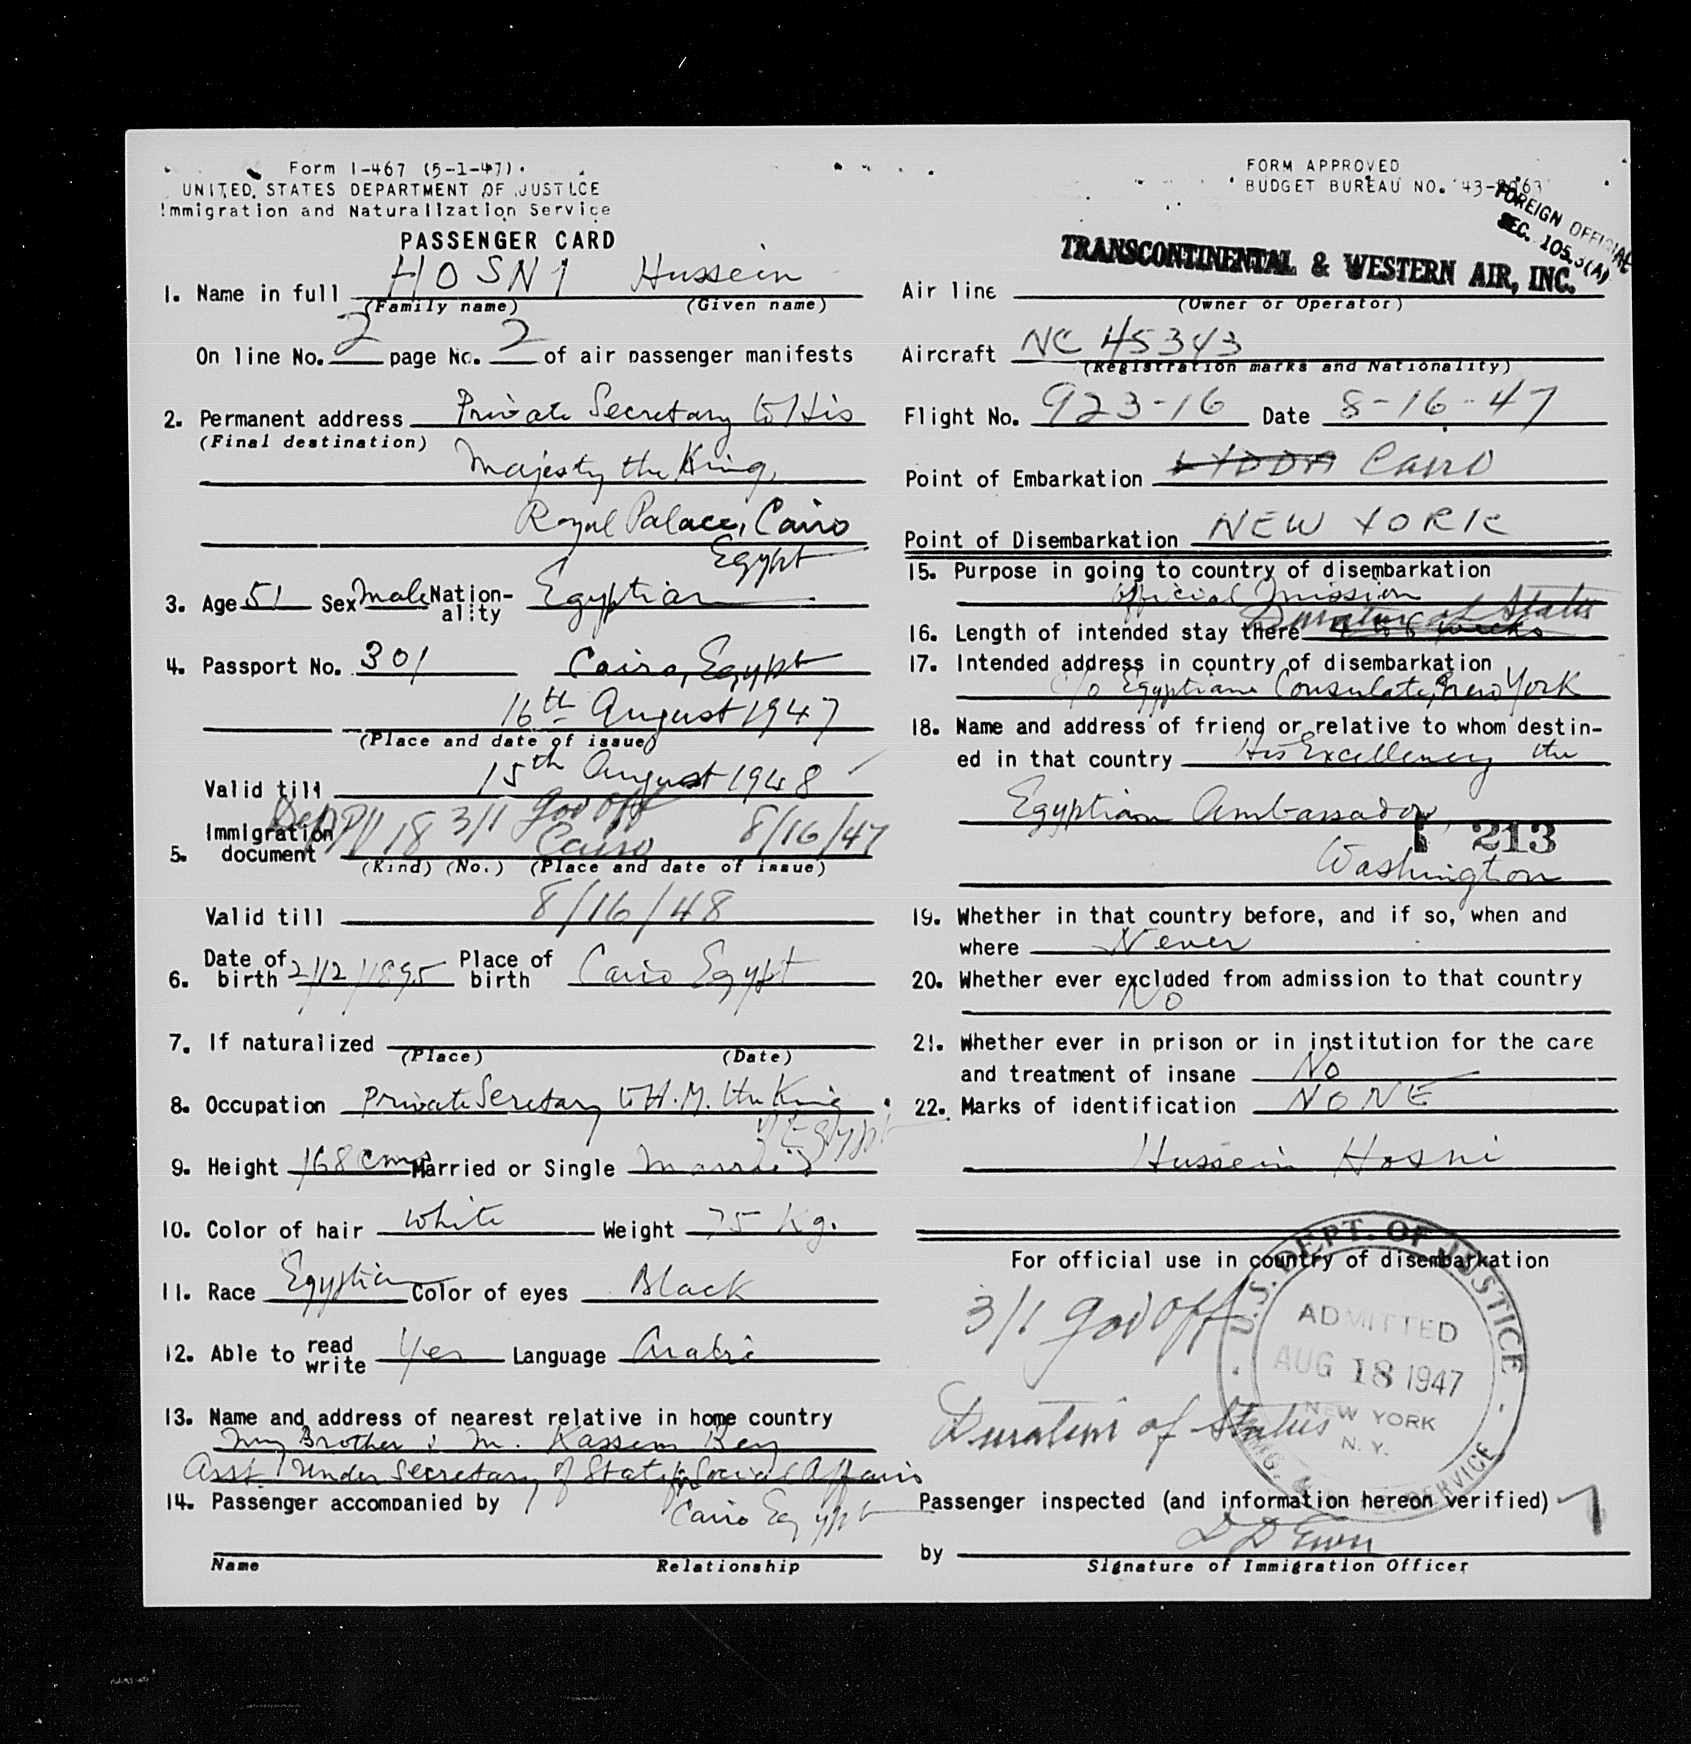 Form I-467 (5-1-47)
UNITED STATES DEPARTMENT OF JUSTICE
Immigration and Naturalization Service
PASSENGER CARD
1. Name in full HOSNI Hussein
(Family name) (Given name)
On line No. 2 page No. 2 of air passenger manifests
2. Permanent address Private Secretary to His
(Final destination)
Majesty the King,
Royal Palace, Cairo
Egypt
3. Age 51 Sex Male Nationality Egyptian
4. Passport No. 301 Cairo, Egypt
16th August 1947
(Place and date of issue)
Valid till 15th August 1948
5. Immigration document 3/1 Gov Off Cairo 8/16/47
(Kind) (No.) (Place and date of issue)
Valid till 8/16/48
6. Date of birth 2/12/1895 Place of birth Cairo Egypt
7. If naturalized
(Place) (Date)
8. Occupation Private Secretary to H.M. the King
of Egypt
9. Height 168 cms Married or Single Married
10. Color of hair White Weight 75 Kg.
11. Race Egyptian Color of eyes Black
12. Able to read write Yes Language Arabic
13. Name and address of nearest relative in home country
My Brother : M. Kassem Bey
Asst. Under Secretary of State for Social Affairs
Cairo Egypt
14. Passenger accompanied by
Name Relationship
FORM APPROVED
BUDGET BUREAU NO. 43-
FOREIGN OFFICIAL
SEC. 105.3(A)
TRANSCONTINENTAL & WESTERN AIR, INC.
Air line
(Owner or Operator)
Aircraft NC 45343
(Registration marks and Nationality)
Flight No. 923-16 Date 8-16-47
Point of Embarkation LYDDA Cairo
Point of Disembarkation NEW YORK
15. Purpose in going to country of disembarkation
official mission
Duration of Status
16. Length of intended stay there 4 to 6 weeks
17. Intended address in country of disembarkation
c/o Egyptian Consulate, New York
18. Name and address of friend or relative to whom destin-
ed in that country His Excellency the
Egyptian Ambassador
213
Washington
19. Whether in that country before, and if so, when and
where Never
20. Whether ever excluded from admission to that country
No
21. Whether ever in prison or in institution for the care
and treatment of insane No
22. Marks of identification NONE
Hussein Hosni
For official use in country of disembarkation
3/1 Gov Off
Duration of Status
U.S. DEPT. OF JUSTICE
ADMITTED
AUG 18 1947
NEW YORK
N. Y.
IMMIG. & SERVICE
Passenger inspected (and information hereon verified)
by
Signature of Immigration Officer